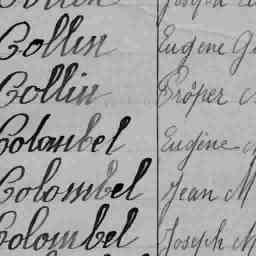 Joseph
Collin Eugène
Collin Prosper
Colombel Eugène
Colombel Jean M
Colombel Joseph M